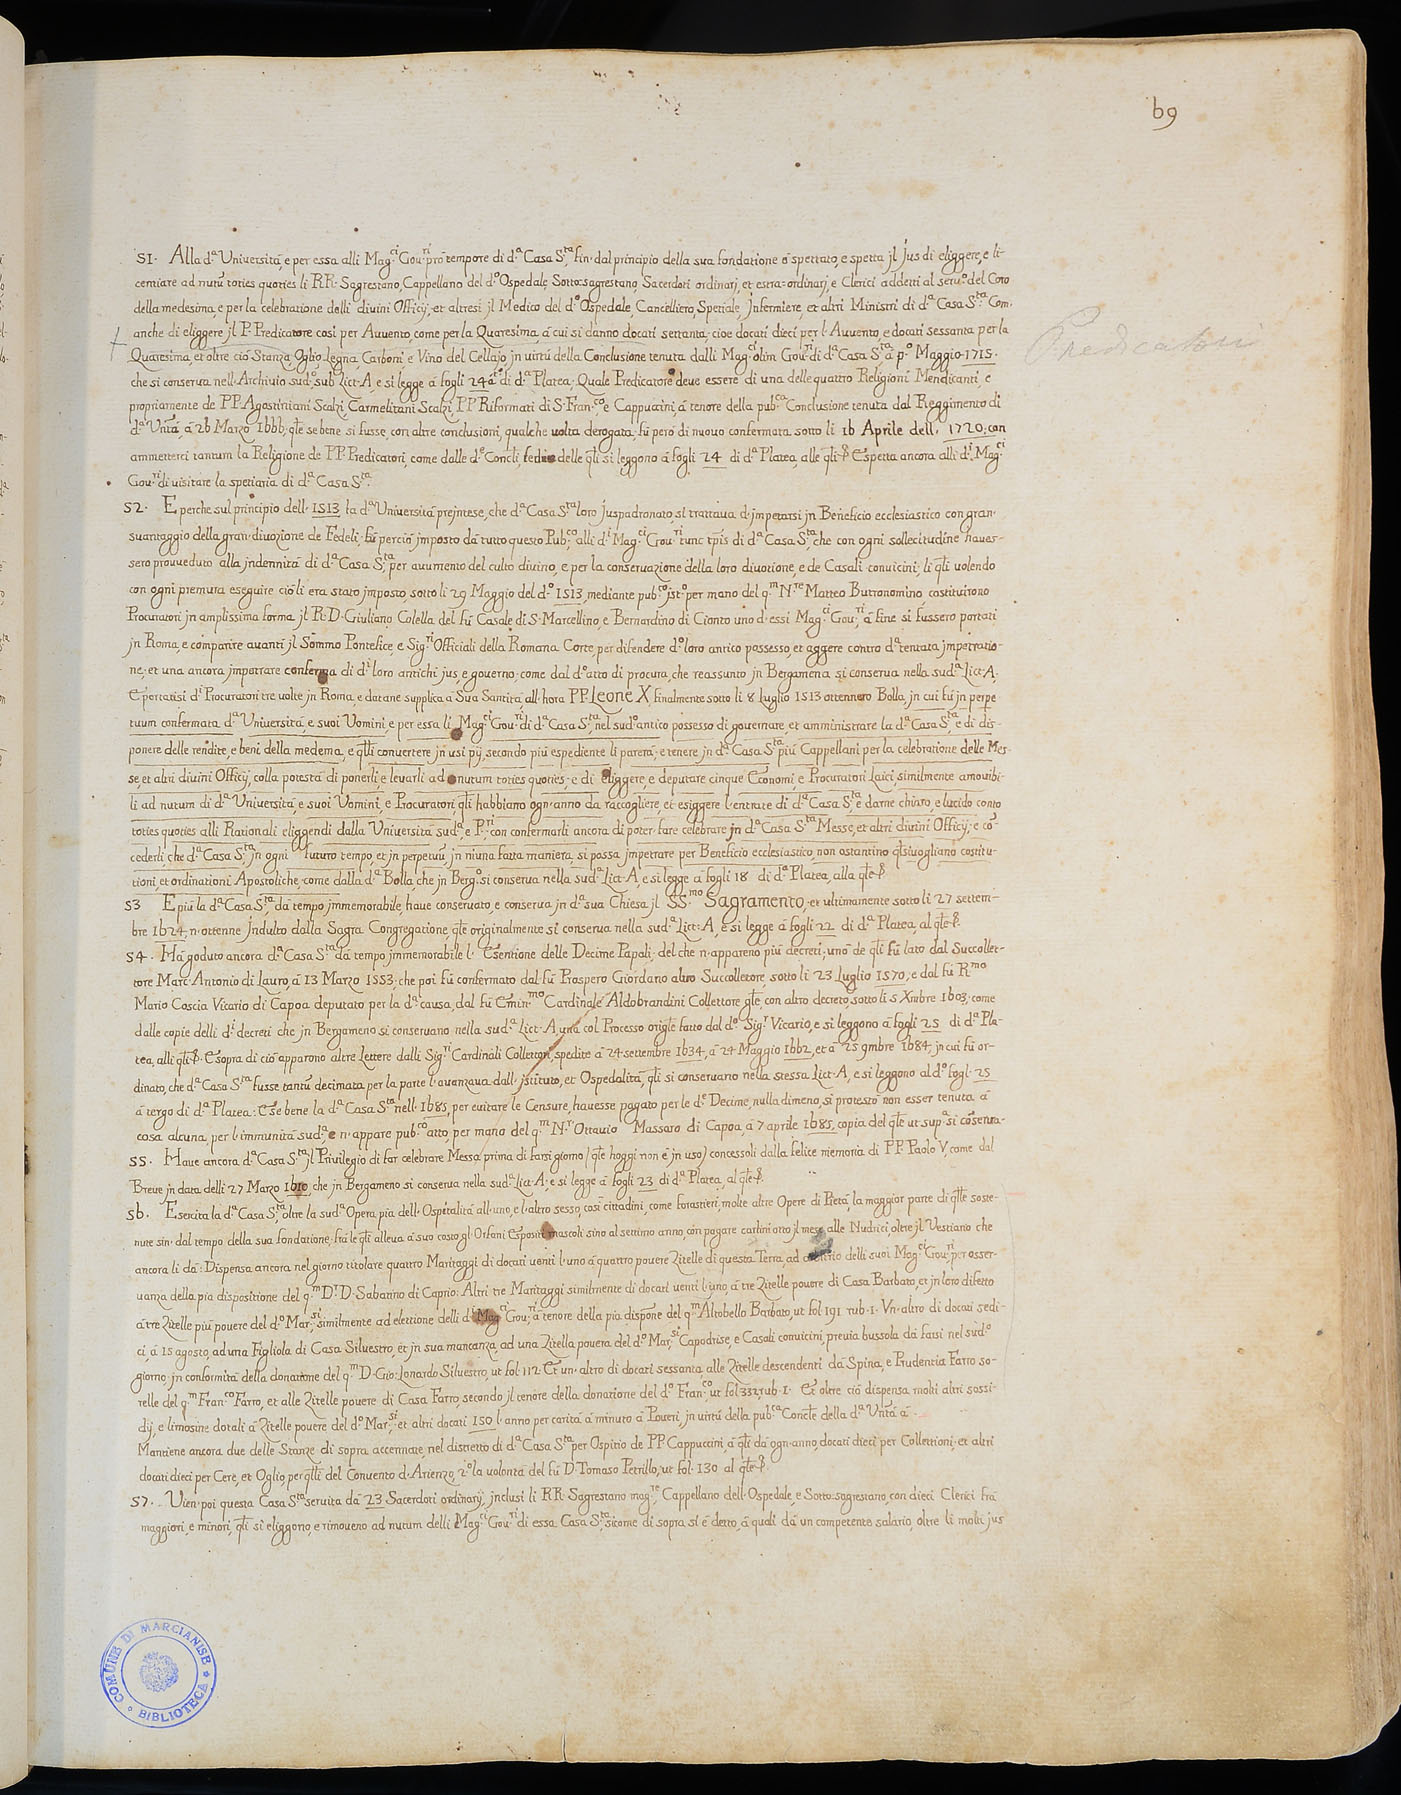 69
51. Alla d.ª Università, e per essa alli Mag.ci Gou.ri prõ tempore di d.ª Casa S.ta, fin dal principio della sua fondatione â spettato, e spetta jl Jus di eliggere, e li-
centiare ad nutũ toties quoties li RR. Sagrestano, Cappellano del d.º Ospedale, Sotto-sagrestano, Sacerdoti ordinarj, et estra-ordinarj, e Clerici addetti al seru.º del Coro
della medesima, e per la celebratione delli diuini Officij; et altresi jl Medico del d.º Ospedale, Cancelliero, Spetiale, Jnfermiere, et altri Ministri di d.ª Casa S.ta Com-
anche di eliggere jl P. Predicatore così per Auuento, come per la Quaresima, â cui si danno docati settanta; cioe docati dieci per l'Auuento, e docati sessanta per la
Predicatori
Quaresima, et oltre ciò Stanza, Oglio, Legna, Carboni, e Vino del Cellajo, jn uirtú della Conclusione tenuta dalli Mag.ci olim Gou.ri di d.ª Casa S.ta â p.º Maggio 1715.
che si conserua nell'Archiuio sud.º sub Lict. A, e si legge â fogli 24 di d.ª Platea; Quale Predicatore deue essere di una delle quattro Religioni Mendicanti, e
propriamente de PP. Agostiniani Scalzi, Carmelitani Scalzi, PP. Riformati di S. Fran.co, e Cappuccini, â tenore della pub.ca Conclusione tenuta dal Reggimento di
d.ª Unt̃à, â 26 Marzo 1666; ql̃e se bene si fusse, con altre conclusioni, qualche uolta derogata, fú però di nuouo confermata sotto li 16 Aprile dell' 1720; con
ammetterci tantum la Religione de PP. Predicatori, come dalle d.e Concl.i, fedi delle ql̃i si leggono â fogli 24 di d.ª Platea, alle ql̃i Espetta ancora alli d.i Mag.ci
Gou.ri di uisitare la spetiaria di d.ª Casa S.ta
52. E perche sul principio dell' 1513 la d.ª Università prejntese, che d.ª Casa S.ta loro juspadronato, si trattaua d'jmpetarsi jn Beneficio ecclesiastico con gran
suantaggio della gran diuozione de Fedeli; fú perciò jmposto dà tutto questo Pub.co alli d.i Mag.ci Gou.ri tunc tp̃is di d.ª Casa S.ta, che con ogni sollecitudine haues-
sero proueduto alla jndennità di d.ª Casa S.ta per auumento del culto diuino, e per la conseruazione della loro diuotione, e de Casali conuicini; li ql̃i uolendo
con ogni premura eseguire ciò li era stato jmposto, sotto li 29 Maggio del d.º 1513, mediante pub.co jst.º per mano del q.m N.re Matteo Butronomino, costituirono
Procuratori jn amplissima forma jl R. D. Giuliano Colella del fú Casale di S. Marcellino, e Bernardino di Cionto uno d'essi Mag.ci Gou.ri, â fine si fussero portati
jn Roma, e comparire auanti jl Sommo Pontefice, e Sig.ri Officiali della Romana Corte, per difendere d.º loro antico possesso, et aggere contro d.ª tentata jmpetratio-
ne; et una ancora jmpetrare conferma di d.i loro antichi jus, e gouerno; come dal d.º atto di procura, che reassunto jn Bergamena si conserua nella sud.ª Lict. A.
E portatisi d.i Procuratori tre uolte jn Roma, e datane supplica â Sua Santità, all'hora PP. Leone X, finalmente sotto li 8 Luglio 1513 ottennero Bolla, jn cui fú jn perpe
tuum confermata d.ª Università, e suoi Uomini, e per essa li Mag.ci Gou.ri di d.ª Casa S.ta, nel sud.º antico possesso di gouernare, et amministrare la d.ª Casa S.ta, e di dis-
ponere delle rendite, e beni della medema, e ql̃li conuertere jn usi pij, secondo più espediente li parerà; e tenere jn d.ª Casa S.ta più Cappellani per la celebratione delle Mes-
se, et altri diuini Officij, colla potestà di ponerli, e leuarli ad nutum toties quoties; e di eliggere, e deputare cinque Economi, e Procuratori Laici, similmente amouibi-
li ad nutum di d.ª Università, e suoi Uomini, e Procuratori, ql̃i habbiano ogn'anno da raccogliere, et esiggere l'entrate di d.ª Casa S.ta, e darne chiaro, e lucido conto
toties quoties alli Rationali eliggendi dalla Università sud.ª, e P.ri; con confermarli ancora di poter fare celebrare jn d.ª Casa S.ta Messe, et altri diuini Officij; e cõ-
cederli, che d.ª Casa S.ta jn ogni futuro tempo, et jn perpetuũ, jn niuna fatta maniera, si possa jmpetrare per Beneficio ecclesiastico, non ostantino ql̃siuogliano costitu-
tioni, et ordinationi Apostoliche, come dalla d.ª Bolla, che jn Berg.º si conserua nella sud.ª Lict. A, e si legge â fogli 18 di d.ª Platea, alla ql̃e
53 E più la d.ª Casa S.ta, dà tempo jmmemorabile, haue conseruato, e conserua jn d.ª sua Chiesa jl SS.mo Sagramento; et ultimamente sotto li 27 settem-
bre 1624, n'ottenne Jndulto dalla Sagra Congregatione, ql̃e originalmente si conserua nella sud.ª Lict. A, e si legge â fogli 22 di d.ª Platea, al ql̃e
54. Hà goduto ancora d.ª Casa S.ta dà tempo jmmemorabile l'Esentione delle Decime Papali; del che n'appareno più decreti; uno de ql̃i fú lato dal Succollet-
tore Marc'Antonio di Lauro, â 13 Marzo 1553; che poi fú confermato dal fú Prospero Giordano altro Succollettore, sotto li 23 Luglio 1570; e dal fú R.mo
Mario Coscia Vicario di Capoa deputato per la d.ª causa, dal fú Emin.mo Cardinale Aldobrandini Collettore gñle, con altro decreto, sotto li 5 Xmbre 1603; come
dalle copie delli d.i decreti che jn Bergameno si conseruano nella sud.ª Lict. A, una col Processo origl̃e fatto dal d.º Sig.r Vicario, e si leggono â fogli 25 di d.ª Pla-
tea, alli ql̃i. E sopra di ciò apparono altre Lettere dalli Sig.ri Cardinali Collettori, spedite â 24 settembre 1634, â 24 Maggio 1662, et â 25 9mbre 1684; jn cui fú or-
dinato, che d.ª Casa S.ta fusse tantũ decimata per la parte l'auanzaua dall'jstituto, et Ospedalità, ql̃i si conseruano nella stessa Lict. A, e si leggono al d.º fogl. 25
â tergo di d.ª Platea: E se bene la d.ª Casa S.ta nell' 1685, per euitare le Censure, hauesse pagato per le d.e Decime, nulla dimeno, si protestò non esser tenuta â
cosa alcuna, per l'immunità sud.ª, e n'appare pub.co atto, per mano del q.m N.r Ottauio Massaro di Capoa, â 7 aprile 1685, copia del ql̃e ut sup.ª si cõserua-
55. Haue ancora d.ª Casa S.ta jl Priuilegio di far celebrare Messa prima di farsi giorno (ql̃e hoggi non è jn uso) concessoli dalla felice memoria di PP. Paolo V, come dal
Breue jn data delli 27 Marzo 1610, che jn Bergameno si conserua nella sud.ª Lict. A; e si legge â fogli 23 di d.ª Platea, al ql̃e
56. Esercita la d.ª Casa S.ta, oltre la sud.ª Opera pia dell'Ospitalità all'uno, e l'altro sesso, così cittadini, come forastieri, molte altre Opere di Pietà, la maggior parte di ql̃le soste-
nute sin dal tempo della sua fondatione; frà le ql̃i alleua â suo costo gl'Orfani Espositi mascoli sino al settimo anno, con pagare carlini otto jl mese alle Nudrici, oltre jl Vestiario che
ancora li dà: Dispensa ancora nel giorno titolare quattro Maritaggi di docati uenti l'uno â quattro pouere Zitelle di questa Terra, ad arbitrio delli suoi Mag.ci Gou.ri, per osser-
uanza della pia dispositione del q.m D.r D. Sabatino di Caprio: Altri tre Maritaggi similmente di docati uenti l'uno, â tre Zitelle pouere di Casa Barbato, et jn loro difetto
â tre Zitelle più pouere del d.º Mar.si, similmente ad elettione delli d.i Mag.ci Gou.ri, â tenore della pia disp̃one del q.m Altobello Barbato, ut fol. 191 rub. 1. Vn'altro di docati sedi-
ci, â 15 agosto, ad una Figliola di Casa Siluestro, et jn sua mancanza, ad una Zitella pouera del d.º Mar.si, Capodrise, e Casali conuicini, preuia bussola dà farsi nel sud.º
giorno, jn conformità della donatione del q.m D. Gio: Lonardo Siluestro, ut fol. 112. Et un'altro di docati sessanta, alle Zitelle descendenti dà Spina, e Prudentia Farro so-
relle del q.m Fran.co Farro, et alle Zitelle pouere di Casa Farro, secondo jl tenore della donatione del d.º Fran.co, ut fol. 332, rub. 1. Et oltre ciò dispensa molti altri sossi-
dij, e limosine dotali â Zitelle pouere del d.º Mar.si; et altri docati 150 l'anno per carità â minuto â Poueri, jn uirtú della pub.ca Concl̃e della d.ª Unt̃à â
Mantiene ancora due delle Stanze di sopra accennate, nel distretto di d.ª Casa S.ta per Ospitio de PP. Cappuccini, â ql̃i dà ogn'anno, docati dieci per Collettioni; et altri
docati dieci per Cere, et Oglio, per ql̃li del Conuento d'Arienzo, 2.º la uolontà del fú D. Tomaso Petrillo, ut fol. 130 al ql̃e
57. Vien poi questa Casa S.ta seruita dà 23 Sacerdoti ordinarij, jnclusi li RR. Sagrestano mag.re, Cappellano dell'Ospedale, e Sotto-sagrestano, con dieci Clerici frà
maggiori, e minori, ql̃i si eliggono, e rimoueno ad nutum delli Mag.ci Gou.ri di essa Casa S.ta, sicome di sopra si è detto, â quali dà un competente salario, oltre li molti jus
COMUNE DI MARCIANISE * BIBLIOTECA *